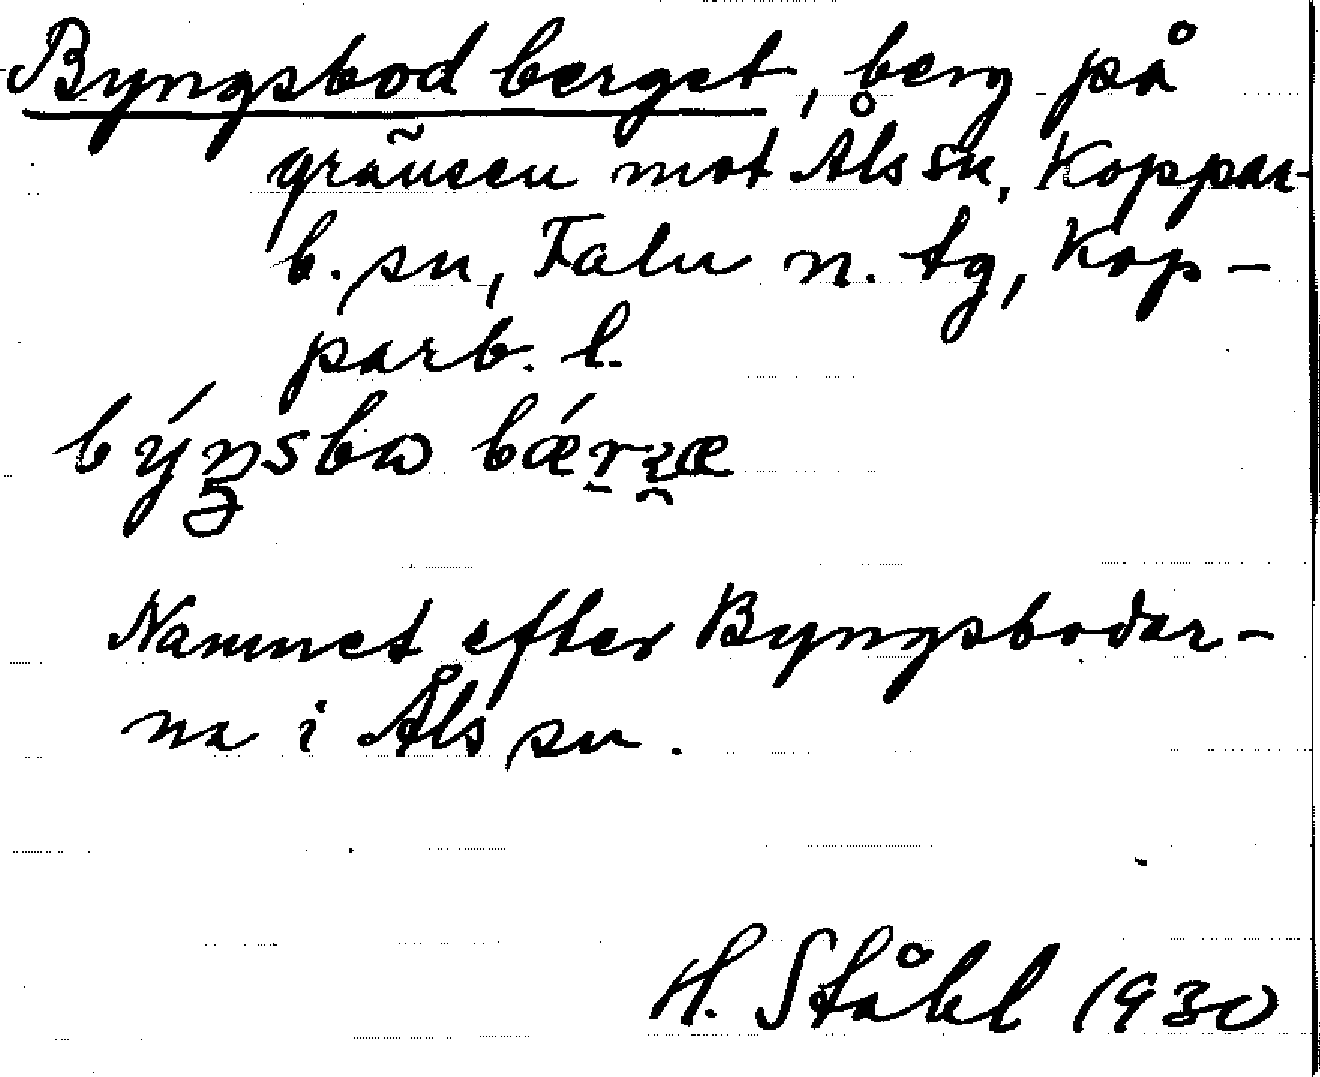 Byngsbodberget, berg på
gränsen mot Åls sn, Koppar-
b. sn, Falu n. tg, Kop-
parb. l.
Namnet efter Byngsbodar-
na i Åls sn.
H. Ståhl 1930